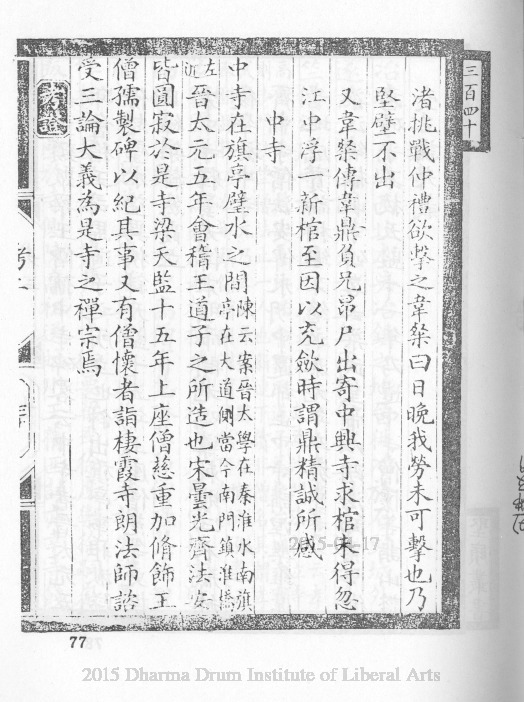 三百四十
渚挑戰仲禮欲擊之韋粲曰日晚我勞未可擊也乃
堅壁不出
又韋粲傳韋鼎負兄昂尸出寄中興寺求棺未得忽
江中浮一新棺至因以充斂時謂鼎精誠所感
中寺
中寺在旗亭壁水之間陳云案晉太學在秦淮水南旗
亭在大道側當今南門鎮淮橋
左近晉太元五年會稽王道子之所造也宋曇光齊法安
皆圓寂於是寺梁天監十五年上座僧慈重加脩飾王
僧孺製碑以紀其事又有僧懷者詣棲霞寺朗法師諮
受三論大義為是寺之禪宗焉
考證
77
2015 Dharma Drum Institute of Liberal Arts